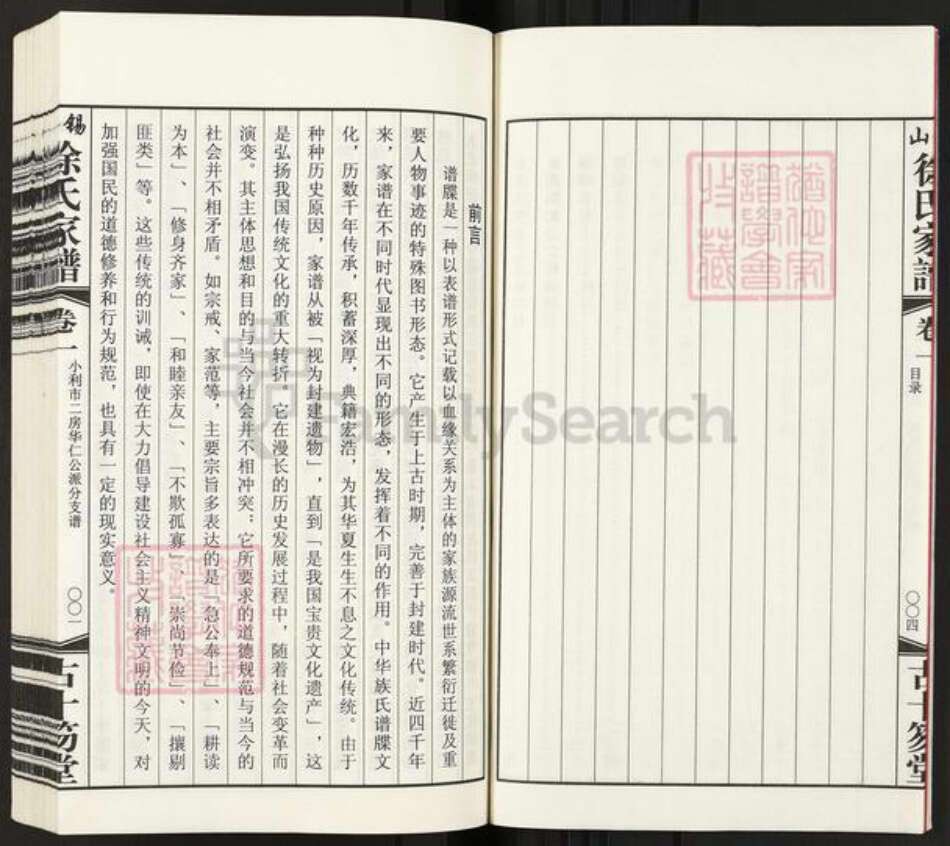 山徐氏家譜
卷一
目录
〇〇四
古十笏堂
前言
谱牒是一种以表谱形式记载以血缘关系为主体的家族源流世系繁衍迁徙及重
要人物事迹的特殊图书形态。它产生于上古时期，完善于封建时代。近四千年
来，家谱在不同时代显现出不同的形态，发挥着不同的作用。中华族氏谱牒文
化，历数千年传承，积蓄深厚，典籍宏浩，为其华夏生生不息之文化传统。由于
种种历史原因，家谱从被「视为封建遗物」，直到「是我国宝贵文化遗产」，这
是弘扬我国传统文化的重大转折。它在漫长的历史发展过程中，随着社会变革而
演变。其主体思想和目的与当今社会并不相冲突；它所要求的道德规范与当今的
社会并不相矛盾。如宗戒、家范等，主要宗旨多表达的是「急公奉上」、「耕读
为本」、「修身齐家」、「和睦亲友」、「不欺孤寡」、「崇尚节俭」、「攘剔
匪类」等。这些传统的训诫，即使在大力倡导建设社会主义精神文明的今天，对
加强国民的道德修养和行为规范，也具有一定的现实意义。
锡
徐氏家譜
卷一
小利市二房华仁公派分支谱
〇〇一
古十笏堂
FamilySearch